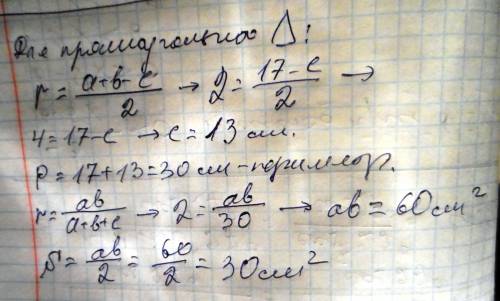 Для прямоугольного Δ:
r = a+b-c/2 → 2 = 17-c/2 →
4=17-c → c=13 см.
P=17+13=30 см - периметр.
r = ab/a+b+c → 2 = ab/30 → ab = 60 см²
S = ab/2 = 60/2 = 30 см²